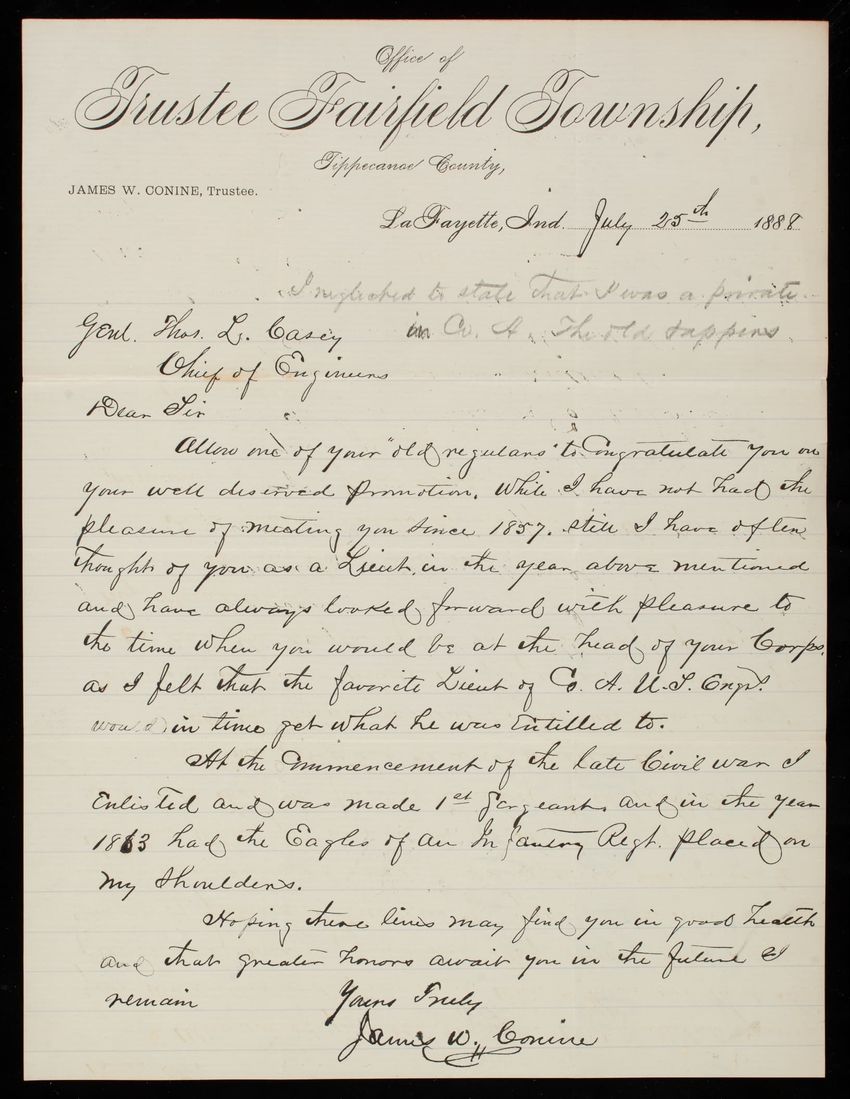 Office of
Trustee Fairfield Township,
Tippecanoe County,
JAMES W. CONINE, Trustee.
LaFayette, Ind. July 25th 1888
I neglected to state that I was a private
in Co. A. The old sappers
Genl. Thos. L. Casey
Chief of Engineers
Dear Sir
Allow one of your "old regulars" to Congratulate you on
your well deserved promotion. While I have not had the
pleasure of meeting you since 1857. still I have often
thought of you as a Lieut. in the year above mentioned
and have always looked forward with pleasure to
the time when you would be at the head of your Corps.
as I felt that the favorite Lieut of Co. A. U.S. Engr.
would in time get what he was Entitled to.
At the Commencement of the late Civil war I
Enlisted and was made 1st Sergeant and in the year
1863 had the Eagles of an Infantry Regt. placed on
my shoulders.
Hoping these lines may find you in good health
and that greater honors await you in the future I
remain Yours Truly
James W. Conine